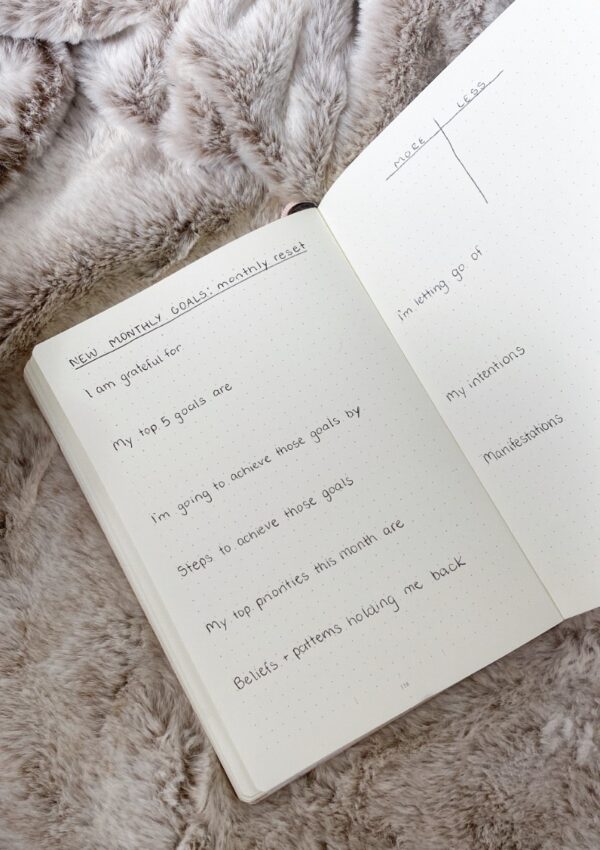 NEW MONTHLY GOALS: monthly reset
I am grateful for
My top 5 goals are
I'm going to achieve those goals by
Steps to achieve those goals
My top priorities this month are
Beliefs + patterns holding me back
MORE LESS
I'm letting go of
My intentions
Manifestations